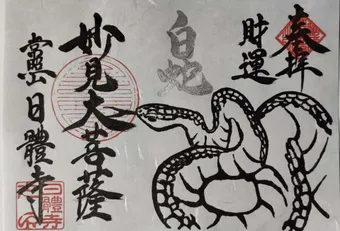 奉拝
財運
白蛇
妙見大菩薩
靈山
日體寺
日體寺